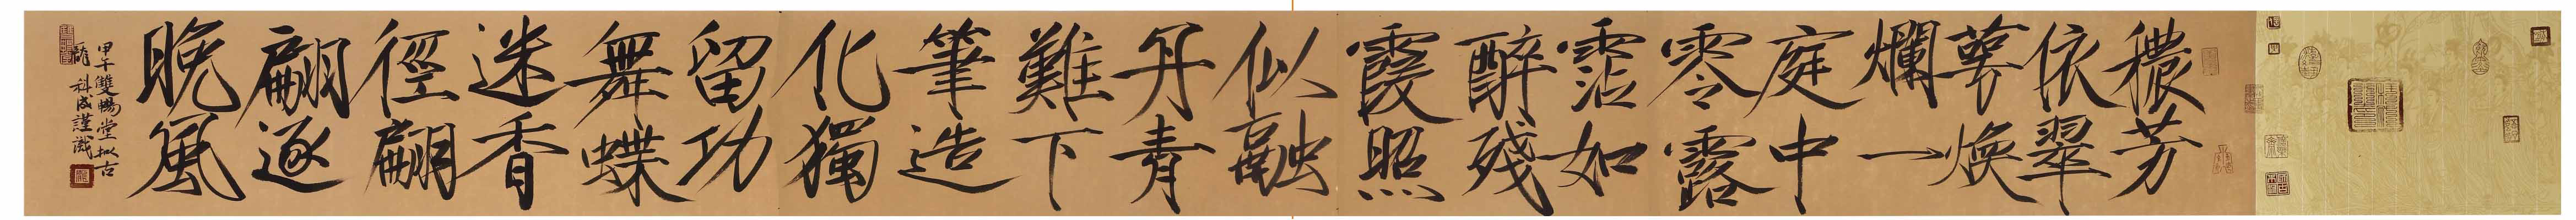 穠芳
依翠
萼煥
爛一
庭中
零露
霑如
醉殘
霞照
似融
丹青
難下
筆造
化獨
留功
舞蝶
迷香
徑翩
翩逐
晚風
甲午雙暢堂拟古
科成謹識